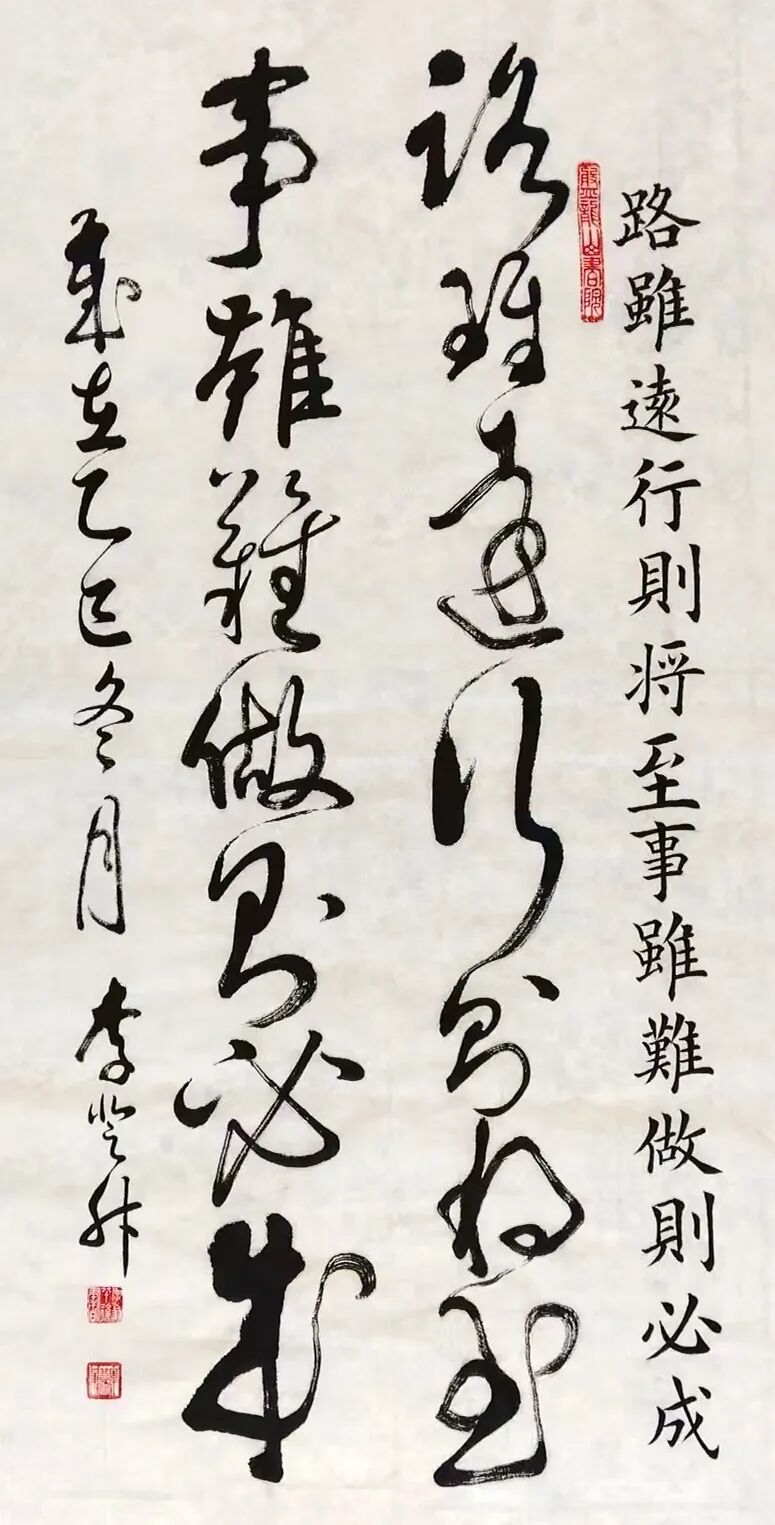 路雖遠行則将至事雖難做則必成
路雖遠行則将至
事雖難做則必成
歲在乙巳冬月 李